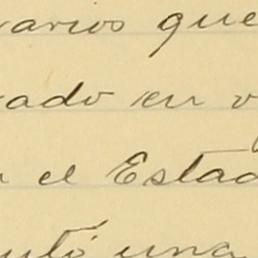 varios que
ado en
el Estad
una